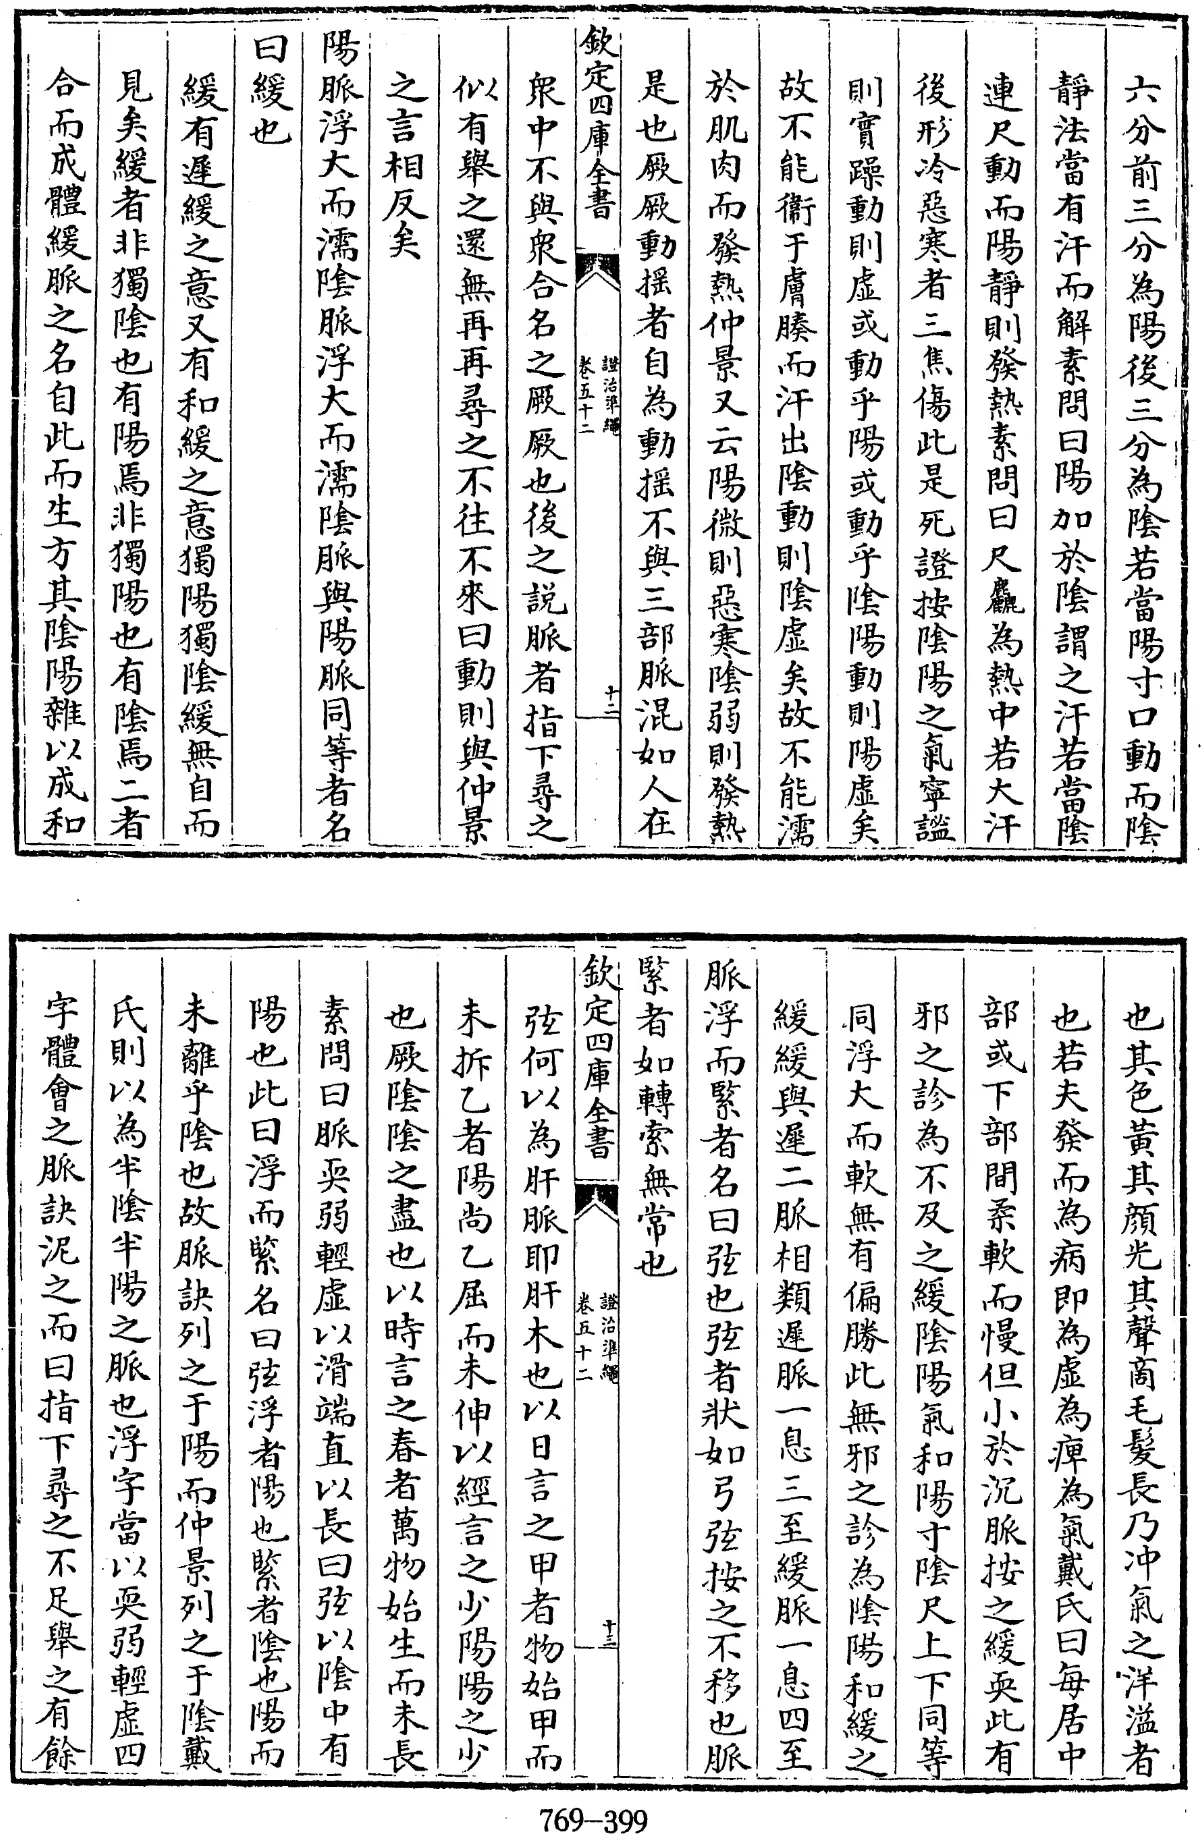 六分前三分為陽後三分為陰若當陽寸口動而陰
靜法當有汗而解素問曰陽加於陰謂之汗若當陰
連尺動而陽靜則發熱素問曰尺麤為熱中若大汗
後形冷惡寒者三焦傷此是死證按陰陽之氣寧謐
則實躁動則虛或動乎陽或動乎陰陽動則陽虛矣
故不能衞于膚腠而汗出陰動則陰虛矣故不能濡
於肌肉而發熱仲景又云陽微則惡寒陰弱則發熱
是也厥厥動揺者自為動揺不與三部脈混如人在
欽定四庫全書
證治準繩
卷五十二
十二
衆中不與衆合名之厥厥也後之説脈者指下尋之
似有舉之還無再再尋之不往不來曰動則與仲景
之言相反矣
陽脈浮大而濡陰脈浮大而濡陰脈與陽脈同等者名
曰緩也
緩有遲緩之意又有和緩之意獨陽獨陰緩無自而
見矣緩者非獨陰也有陽焉非獨陽也有陰焉二者
合而成體緩脈之名自此而生方其陰陽雜以成和
也其色黄其顔光其聲商毛髪長乃冲氣之洋溢者
也若夫發而為病即為虛為痺為氣戴氏曰每居中
部或下部間柔軟而慢但小於沉脈按之緩耎此有
邪之診為不及之緩陰陽氣和陽寸陰尺上下同等
同浮大而軟無有偏勝此無邪之診為陰陽和緩之
緩緩與遲二脈相類遲脈一息三至緩脈一息四至
脈浮而緊者名曰弦也弦者狀如弓弦按之不移也脈
緊者如轉索無常也
欽定四庫全書
證治準繩
卷五十二
十三
弦何以為肝脈耶肝木也以日言之甲者物始甲而
未拆乙者陽尚乙屈而未伸以經言之少陽陽之少
也厥陰陰之盡也以時言之春者萬物始生而未長
素問曰脈耎弱輕虛以滑端直以長曰弦以陰中有
陽也此曰浮而緊名曰弦浮者陽也緊者陰也陽而
未離乎陰也故脈訣列之于陽而仲景列之于陰戴
氏則以為半陰半陽之脈也浮字當以耎弱輕虛四
字體會之脈訣泥之而曰指下尋之不足舉之有餘
769-399